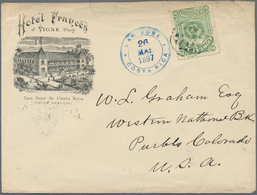 Hotel Francés
J. VIGNE, Prop.
SAN JOSE
26
MAI
1897
COSTA RICA
San José de Costa Rica
W. L. Graham Esq
Western National Bk
Pueblo Colorado
U.S.A.